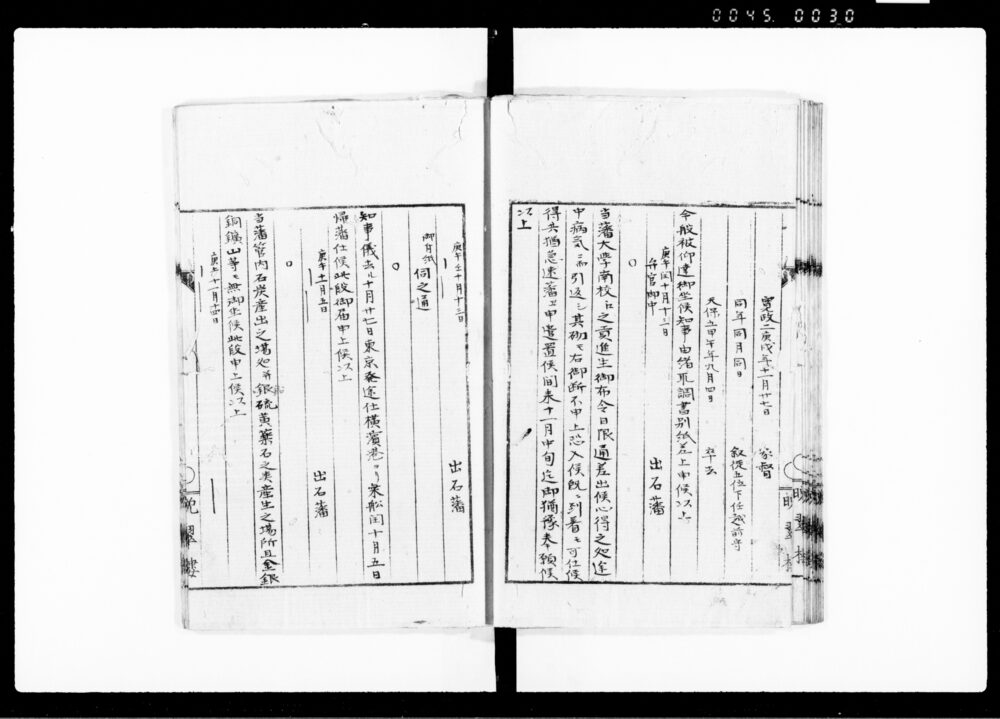 0045.0030
寛政二庚戌年十一月廿七日 家督
同年同月同日 叙従五位下任越前守
天保五甲午年九月四日 卒去
今般被仰達御坐候知事由緒取調書別紙差上申候以上
庚午閏十月十二日 出石藩
弁官御中
○
当藩大学南校江之貢進生御布令日限通差出候心得之処途
中病気ニ而引返シ其砌モ右御断不申上恐入候既ニ到着モ可仕候
得共猶急速藩江申遣置候間来十一月中旬迄御猶豫奉願候
以上
庚午壬十月十三日 出石藩
御付紙 伺之通
○
知事儀去ル十月廿七日東京発途仕横濱港ヨリ乗船閏十月五日
帰藩仕候此段御届申上候以上
庚午十一月五日 出石藩
○
当藩管内石炭産出之場処并銀硫黄薬石之类産生之場所且金銀
銅鑛山等モ無御坐候此段申上候以上
庚午十一月十四日
晩翠樓